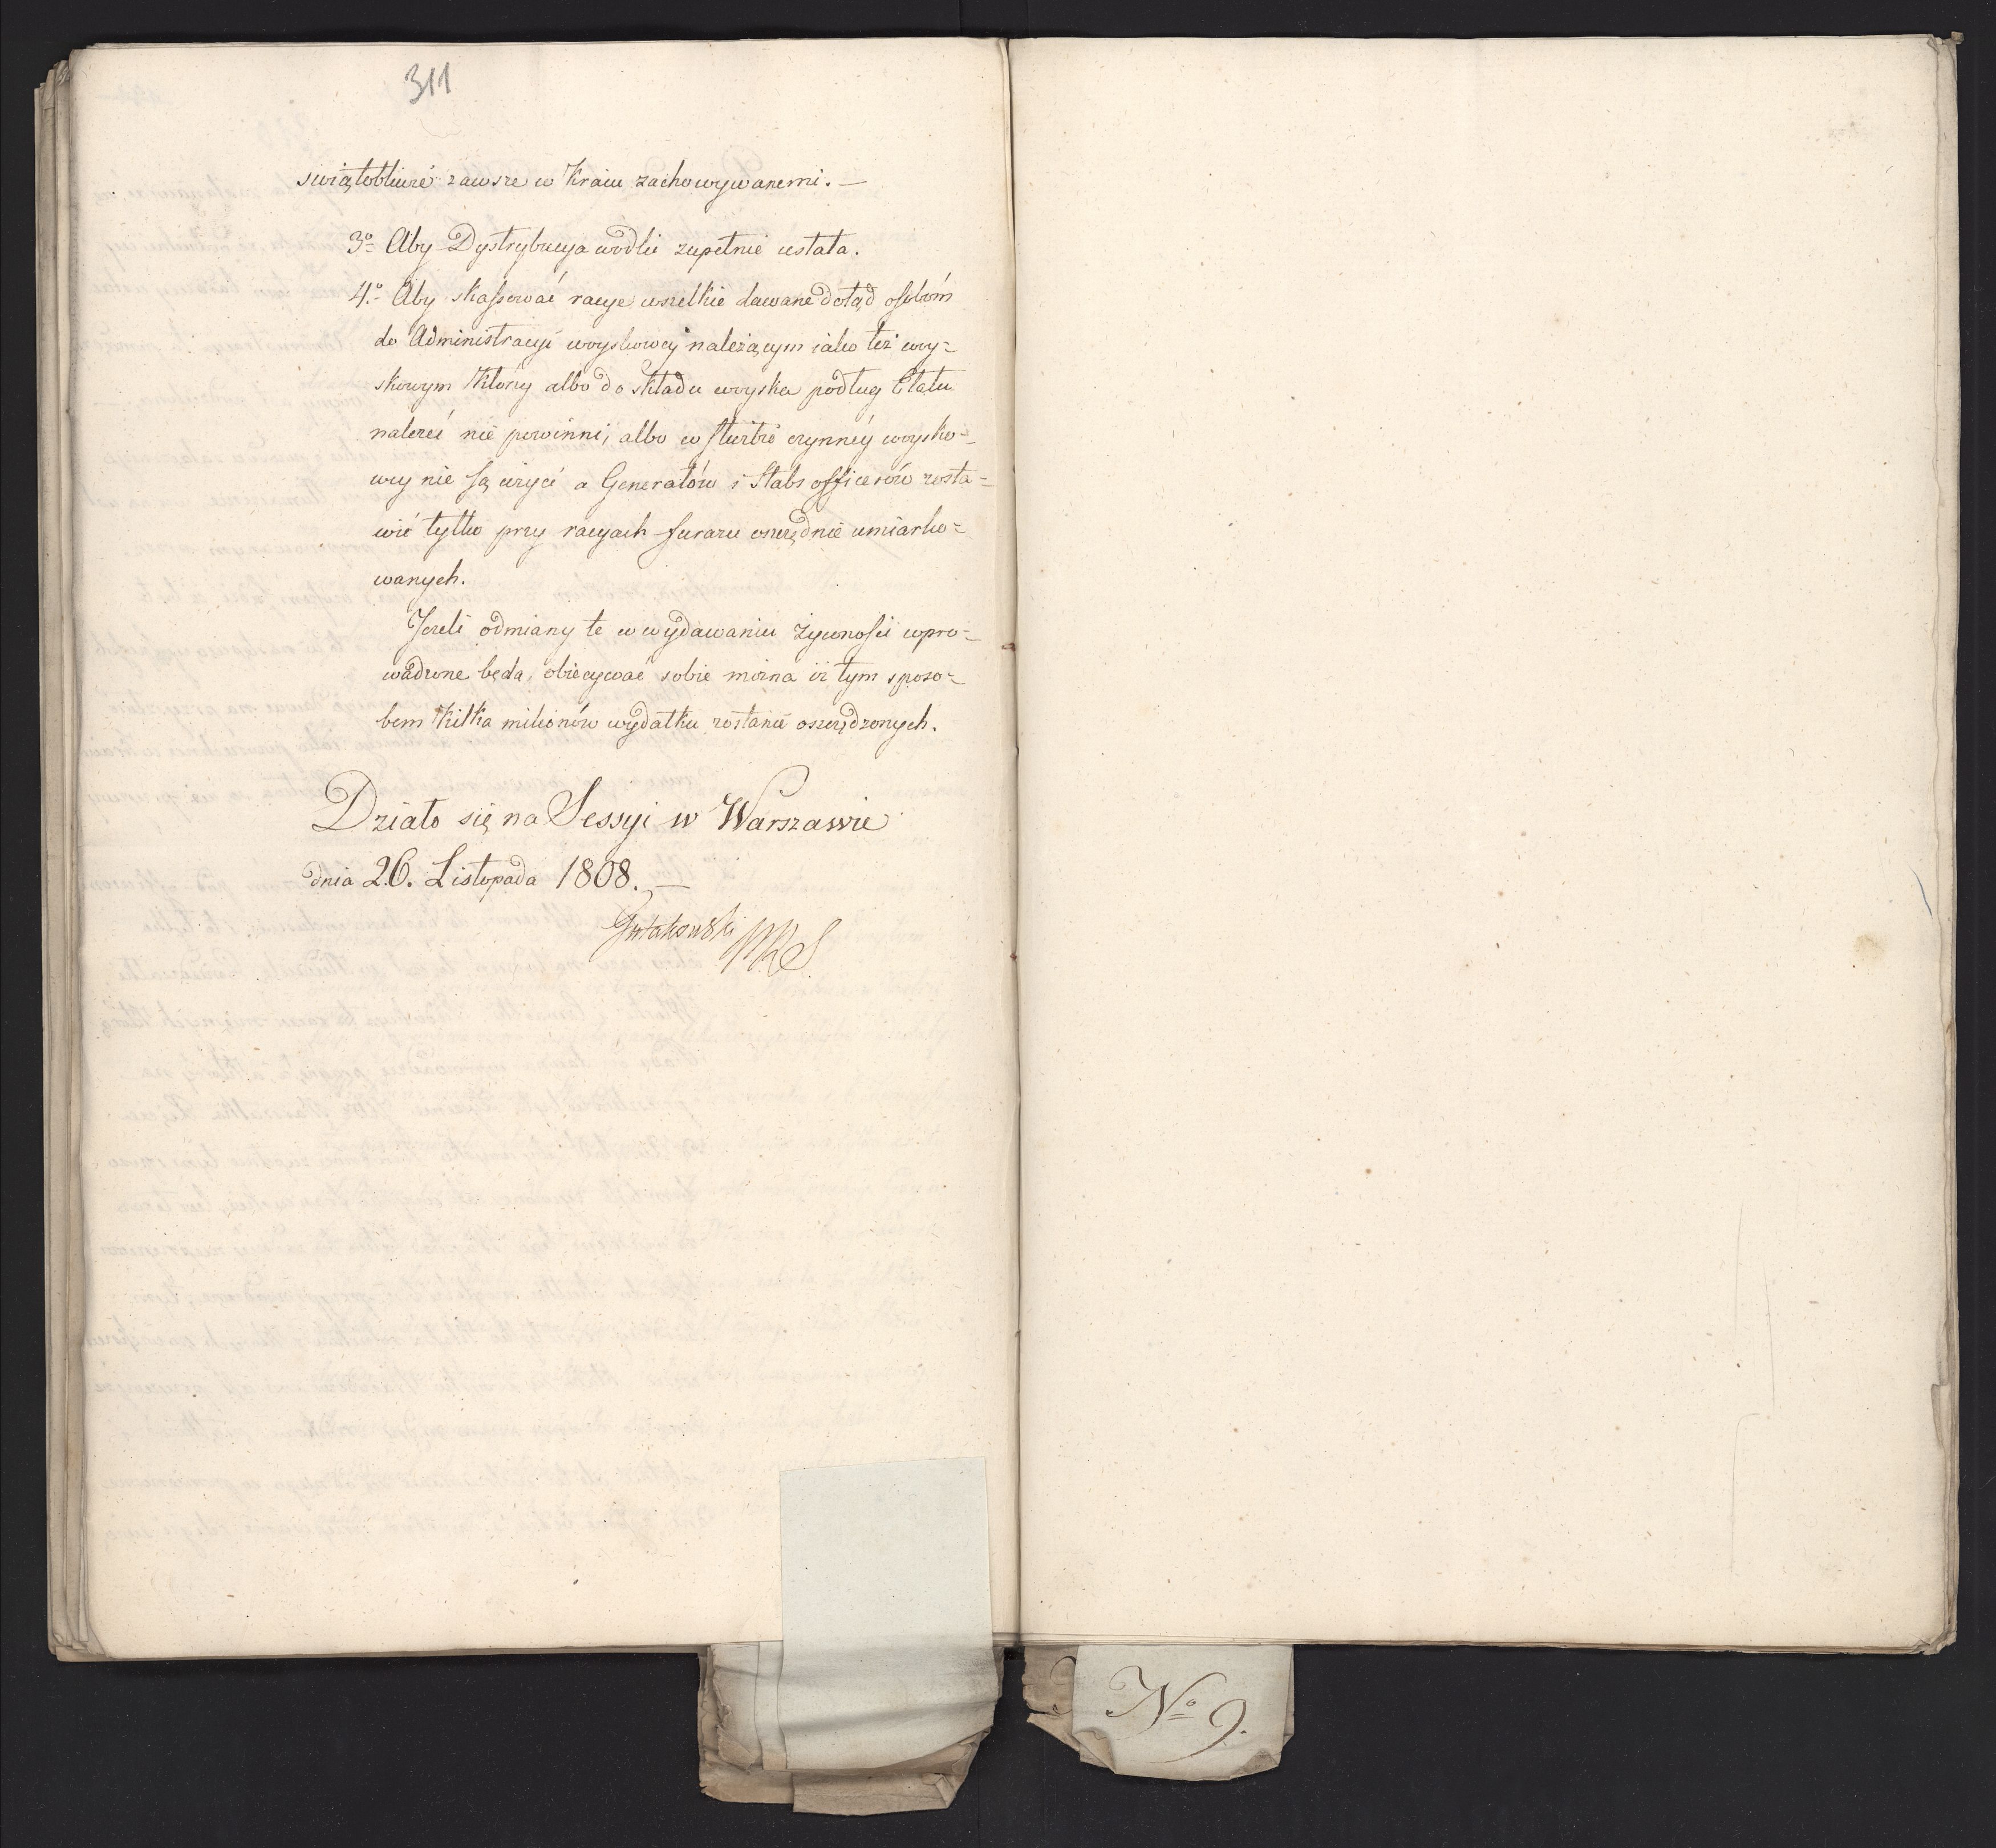 311
swiątobliwie zawsze w Kraiu zachowywanemi. —
3º Aby Dystrybucya wodki zupełnie ustała.
4º Aby skassować racye wszelkie dawane dotąd osobóm
do Administracyi woyskowey należącym iako też woy=
skowym którzy albo do składu woyska podług Etatu
należeć nie powinni, albo w służbie czynnéy woysko=
wey nie są użyci a Generałów i Stabs officerów zosta=
wić tylko przy racyach furażu oszczędnie umiarko=
wanych.
Jeżeli odmiany te w wydawaniu żywności wpro=
wadzone będą, obiecywać sobie można iż tym sposo=
bem kilka milionów wydatku zostanie oszczędzonych.
Działo się na Sessyi w Warszawie
dnia 26. Listopada 1808. —
Gutakowski
Nº 9.